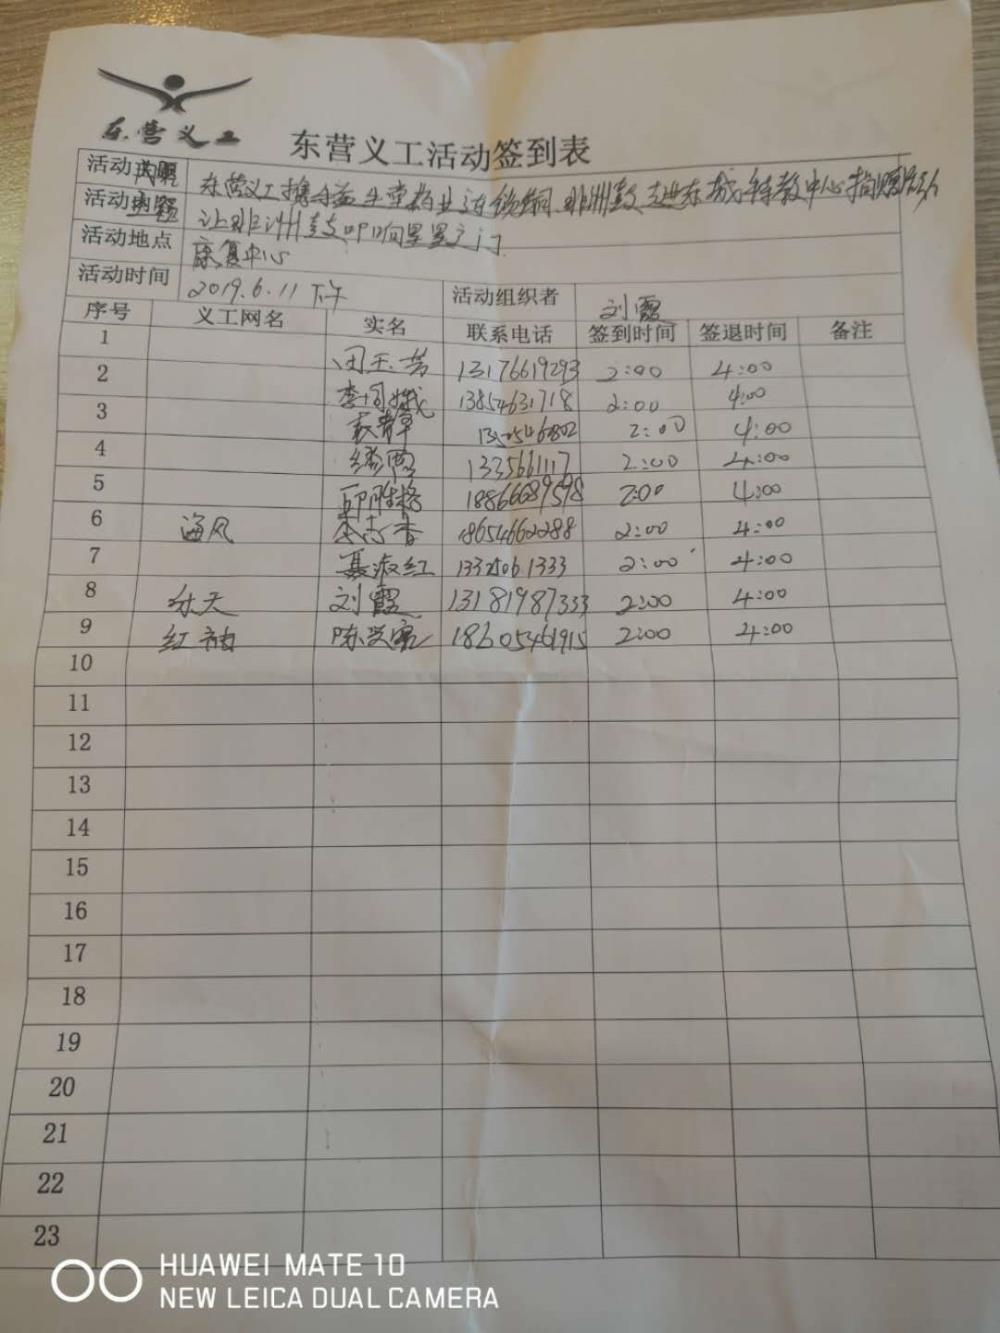 东营义工
东营义工活动签到表
活动
东营义工携手益生堂药业连锁 非洲鼓走进东城特教中心捐赠活动
活动
让非洲鼓叩响星星之门
活动地点 康复中心
活动时间 2019.6.11 下午 活动组织者 刘霞
序号 义工网名 实名 联系电话 签到时间 签退时间 备注
1 13176619293 2:00 4:00
2 13854631718 2:00 4:00
3 2:00 4:00
4 1335661117 2:00 4:00
5 18866689598 2:00 4:00
6 海风 李志香 18654662288 2:00 4:00
7 聂淑红 2:00 4:00
8 乐天 刘霞 13181987333 2:00 4:00
9 红袖 18605461915 2:00 4:00
10
11
12
13
14
15
16
17
18
19
20
21
22
23
HUAWEI MATE 10
NEW LEICA DUAL CAMERA